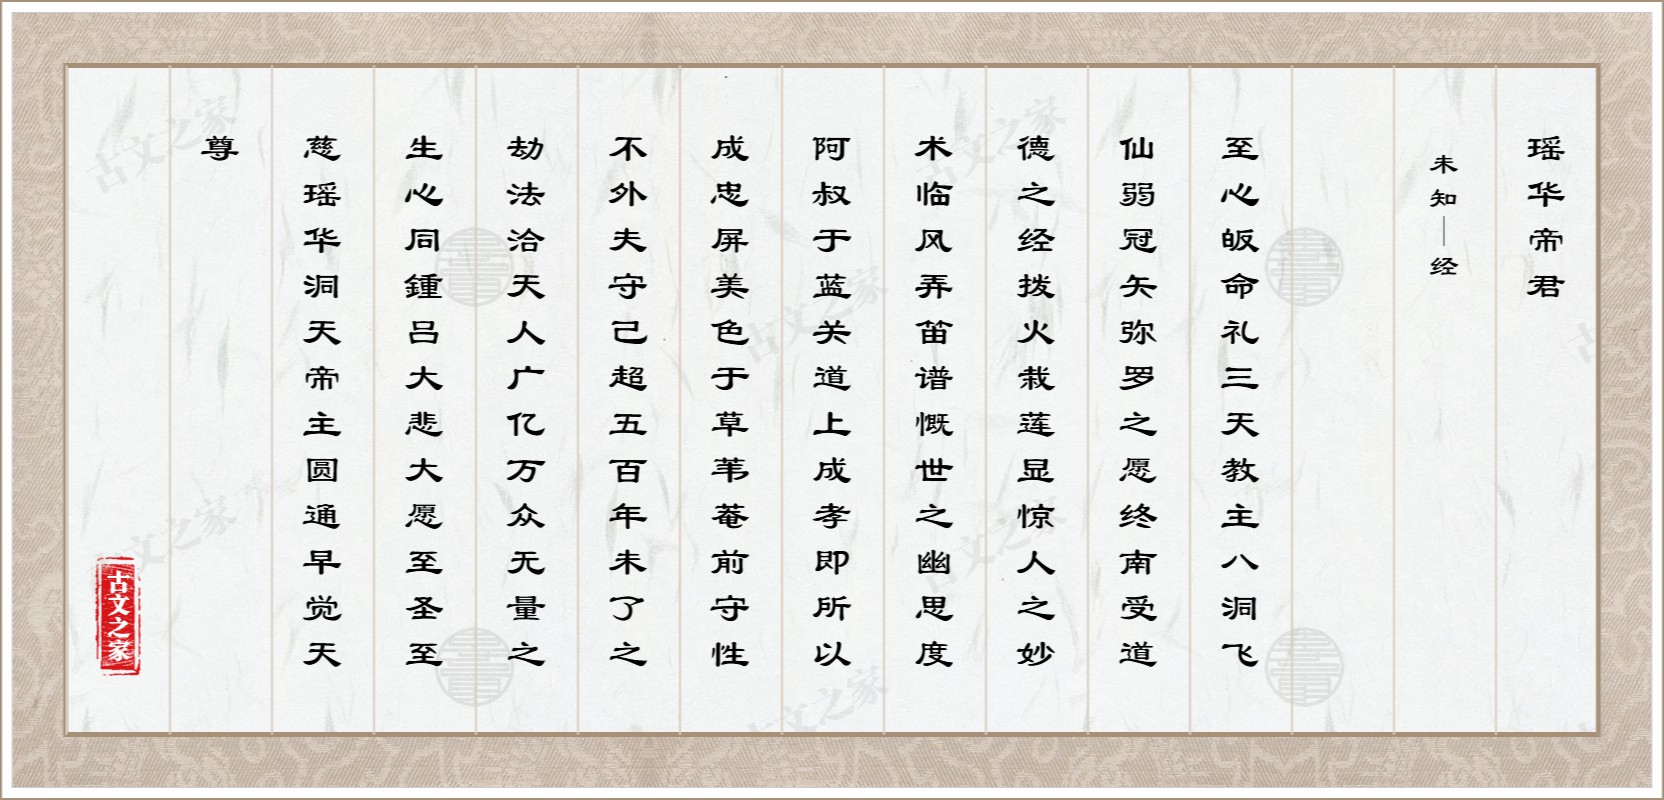 瑶华帝君
未知—经
至心皈命礼三天教主八洞飞
仙弱冠矢弥罗之愿终南受道
德之经拨火栽莲显惊人之妙
术临风弄笛谱慨世之幽思度
阿叔于蓝关道上成孝即所以
成忠屏美色于草苇菴前守性
不外夫守己超五百年未了之
劫法洽天人广亿万众无量之
生心同鍾吕大悲大愿至圣至
慈瑶华洞天帝主圆通早觉天
尊
古文之家